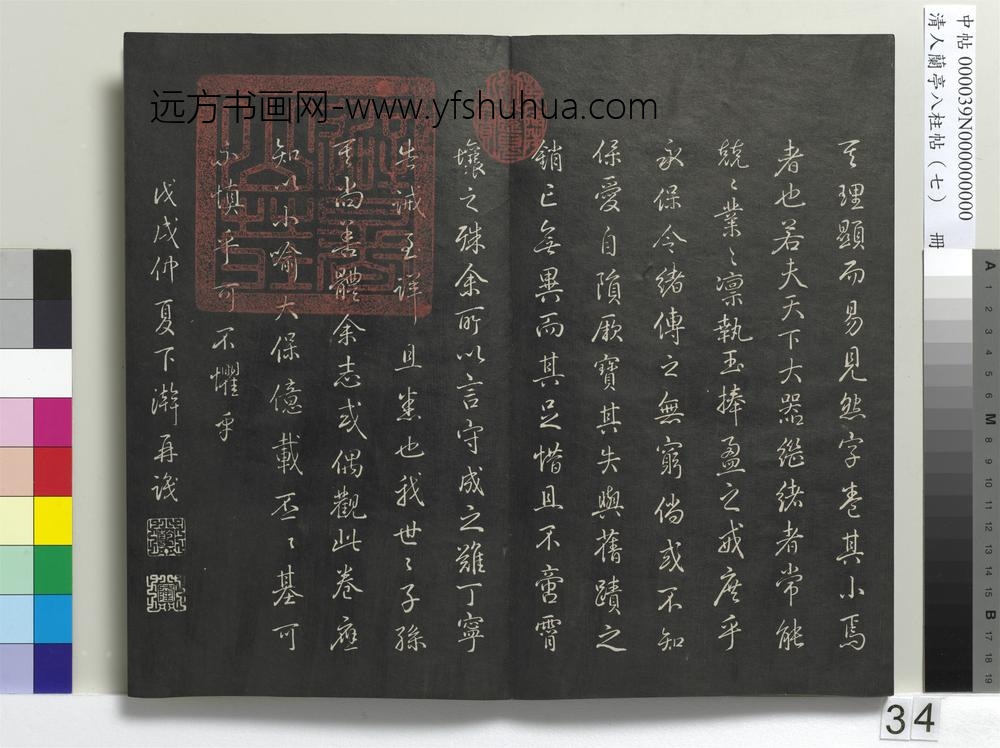 其理顯而易見然字卷其小焉
者也若夫天下大器繼緒者常能
兢〻業〻凜執玉捧盈之戒庶乎
永保令緒傳之無窮倘或不知
保愛自隕厥寶其失與舊蹟之
銷亡無異而其足惜且不啻霄
壤之殊余所以言守成之難丁寧
告誡至詳且悉也我世〻子孫
其尚善體余志或偶觀此卷應
知以小喻大保億載丕〻基可
不慎乎可不懼乎
戊戌仲夏下澣再識
远方书画网-www.yfshuhua.com
中帖 000039N000000000
清人蘭亭八柱帖（七） 冊
34
A 1 2 3 4 5 6 M 8 9 10 11 12 13 14 15 B 17 18 19